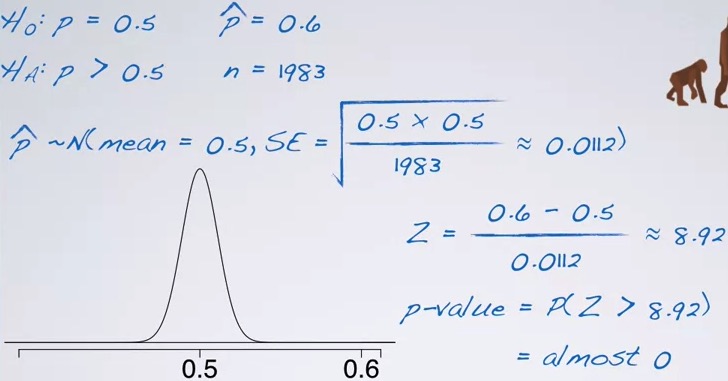 H₀: p = 0.5    p̂ = 0.6
Hₐ: p > 0.5    n = 1983
p̂ ~ N(mean = 0.5, SE = √(0.5 × 0.5 / 1983) ≈ 0.0112)
Z = (0.6 - 0.5) / 0.0112 ≈ 8.92
p-value = P(Z > 8.92)
= almost 0
0.5    0.6